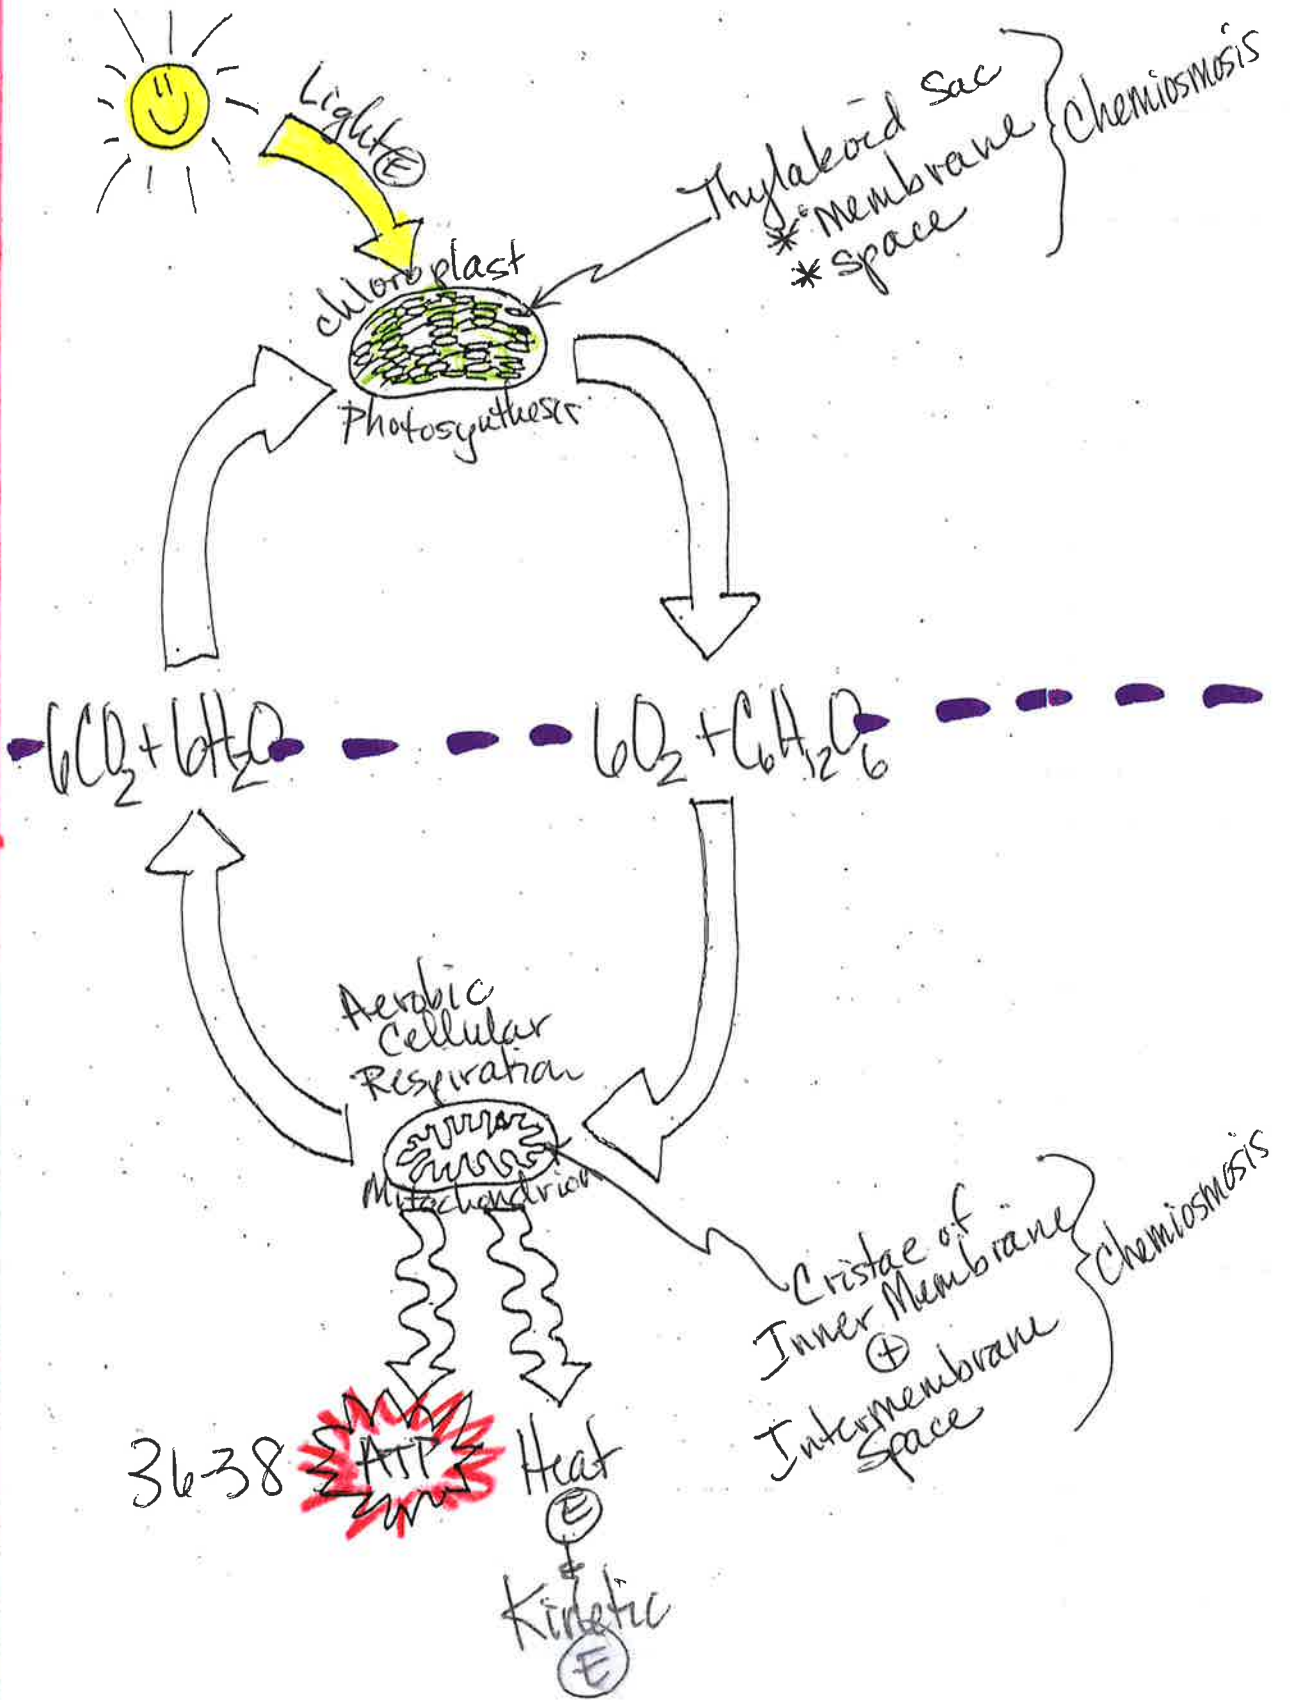 Light Ⓔ
Thylakoid Sac
* membrane
* space
Chemiosmosis
chloroplast
Photosynthesis
6CO₂+6H₂O
6O₂+C₆H₁₂O₆
Aerobic
Cellular
Respiration
Mitochondrion
Cristae of
Inner Membrane
⊕
Intermembrane
Space
Chemiosmosis
36-38
ATP
Heat
Ⓔ
Kinetic
Ⓔ